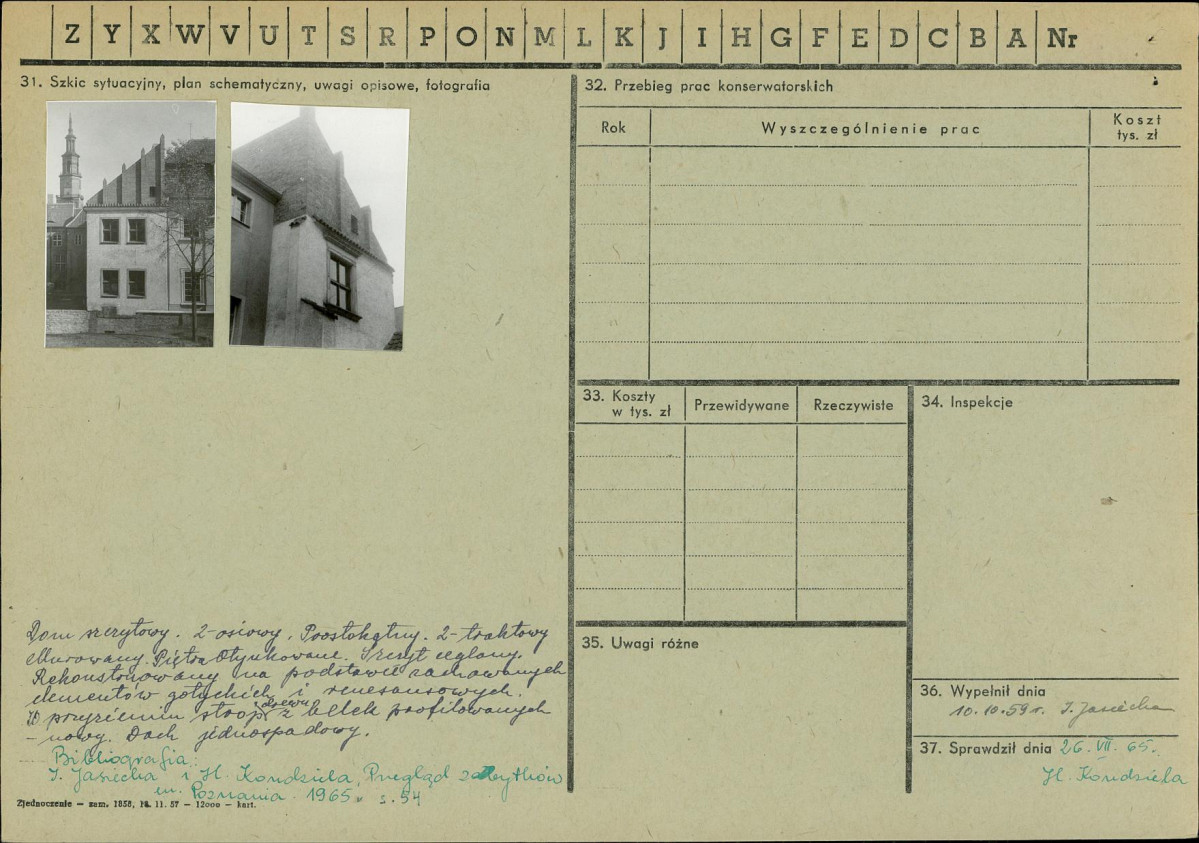 Z Y X W V U T S R P O N M L K J I H G F E D C B A Nr
31. Szkic sytuacyjny, plan schematyczny, uwagi opisowe, fotografia
Dom szczytowy. 2-osiowy. Prostokątny. 2-traktowy
Murowany. Piętra Otynkowane. Szczyt ceglany.
Rekonstruowany na podstawie zachowanych
elementów gotyckich i renesansowych.
W przyziemiu strop drewn. z belek profilowanych
- nowy. Dach jednospadowy.
Bibliografia:
I. Jasiecka i H. Kondziela, Przegląd zabytków
m. Poznania 1965 s. 54
Zjednoczenie — zam. 1858, 18. 11. 57 — 12000 — kart.
32. Przebieg prac konserwatorskich
Rok Wyszczególnienie prac Koszt tys. zł
33. Koszty w tys. zł Przewidywane Rzeczywiste
34. Inspekcje
35. Uwagi różne
36. Wypełnił dnia
10.10.59 r. I. Jasiecka
37. Sprawdził dnia 26. VII. 65.
H. Kondziela